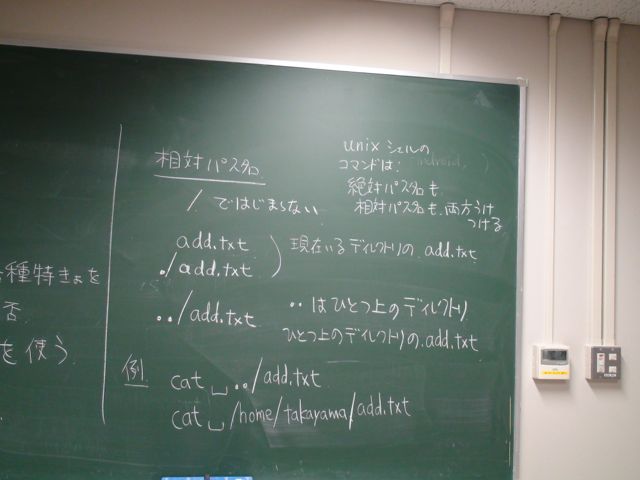 種特きょを
否
を使う
相対パス名
/ ではじまらない
add.txt
./add.txt
現在いるディレクトリの add.txt
../add.txt
.. はひとつ上のディレクトリ
ひとつ上のディレクトリの add.txt
例
cat␣../add.txt
cat␣/home/takayama/add.txt
unix シェルの
コマンドは:
絶対パス名も
相対パス名も 両方うけ
つける